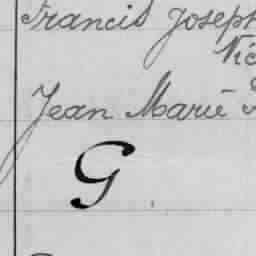 Francis Joseph
Jean Marie
G